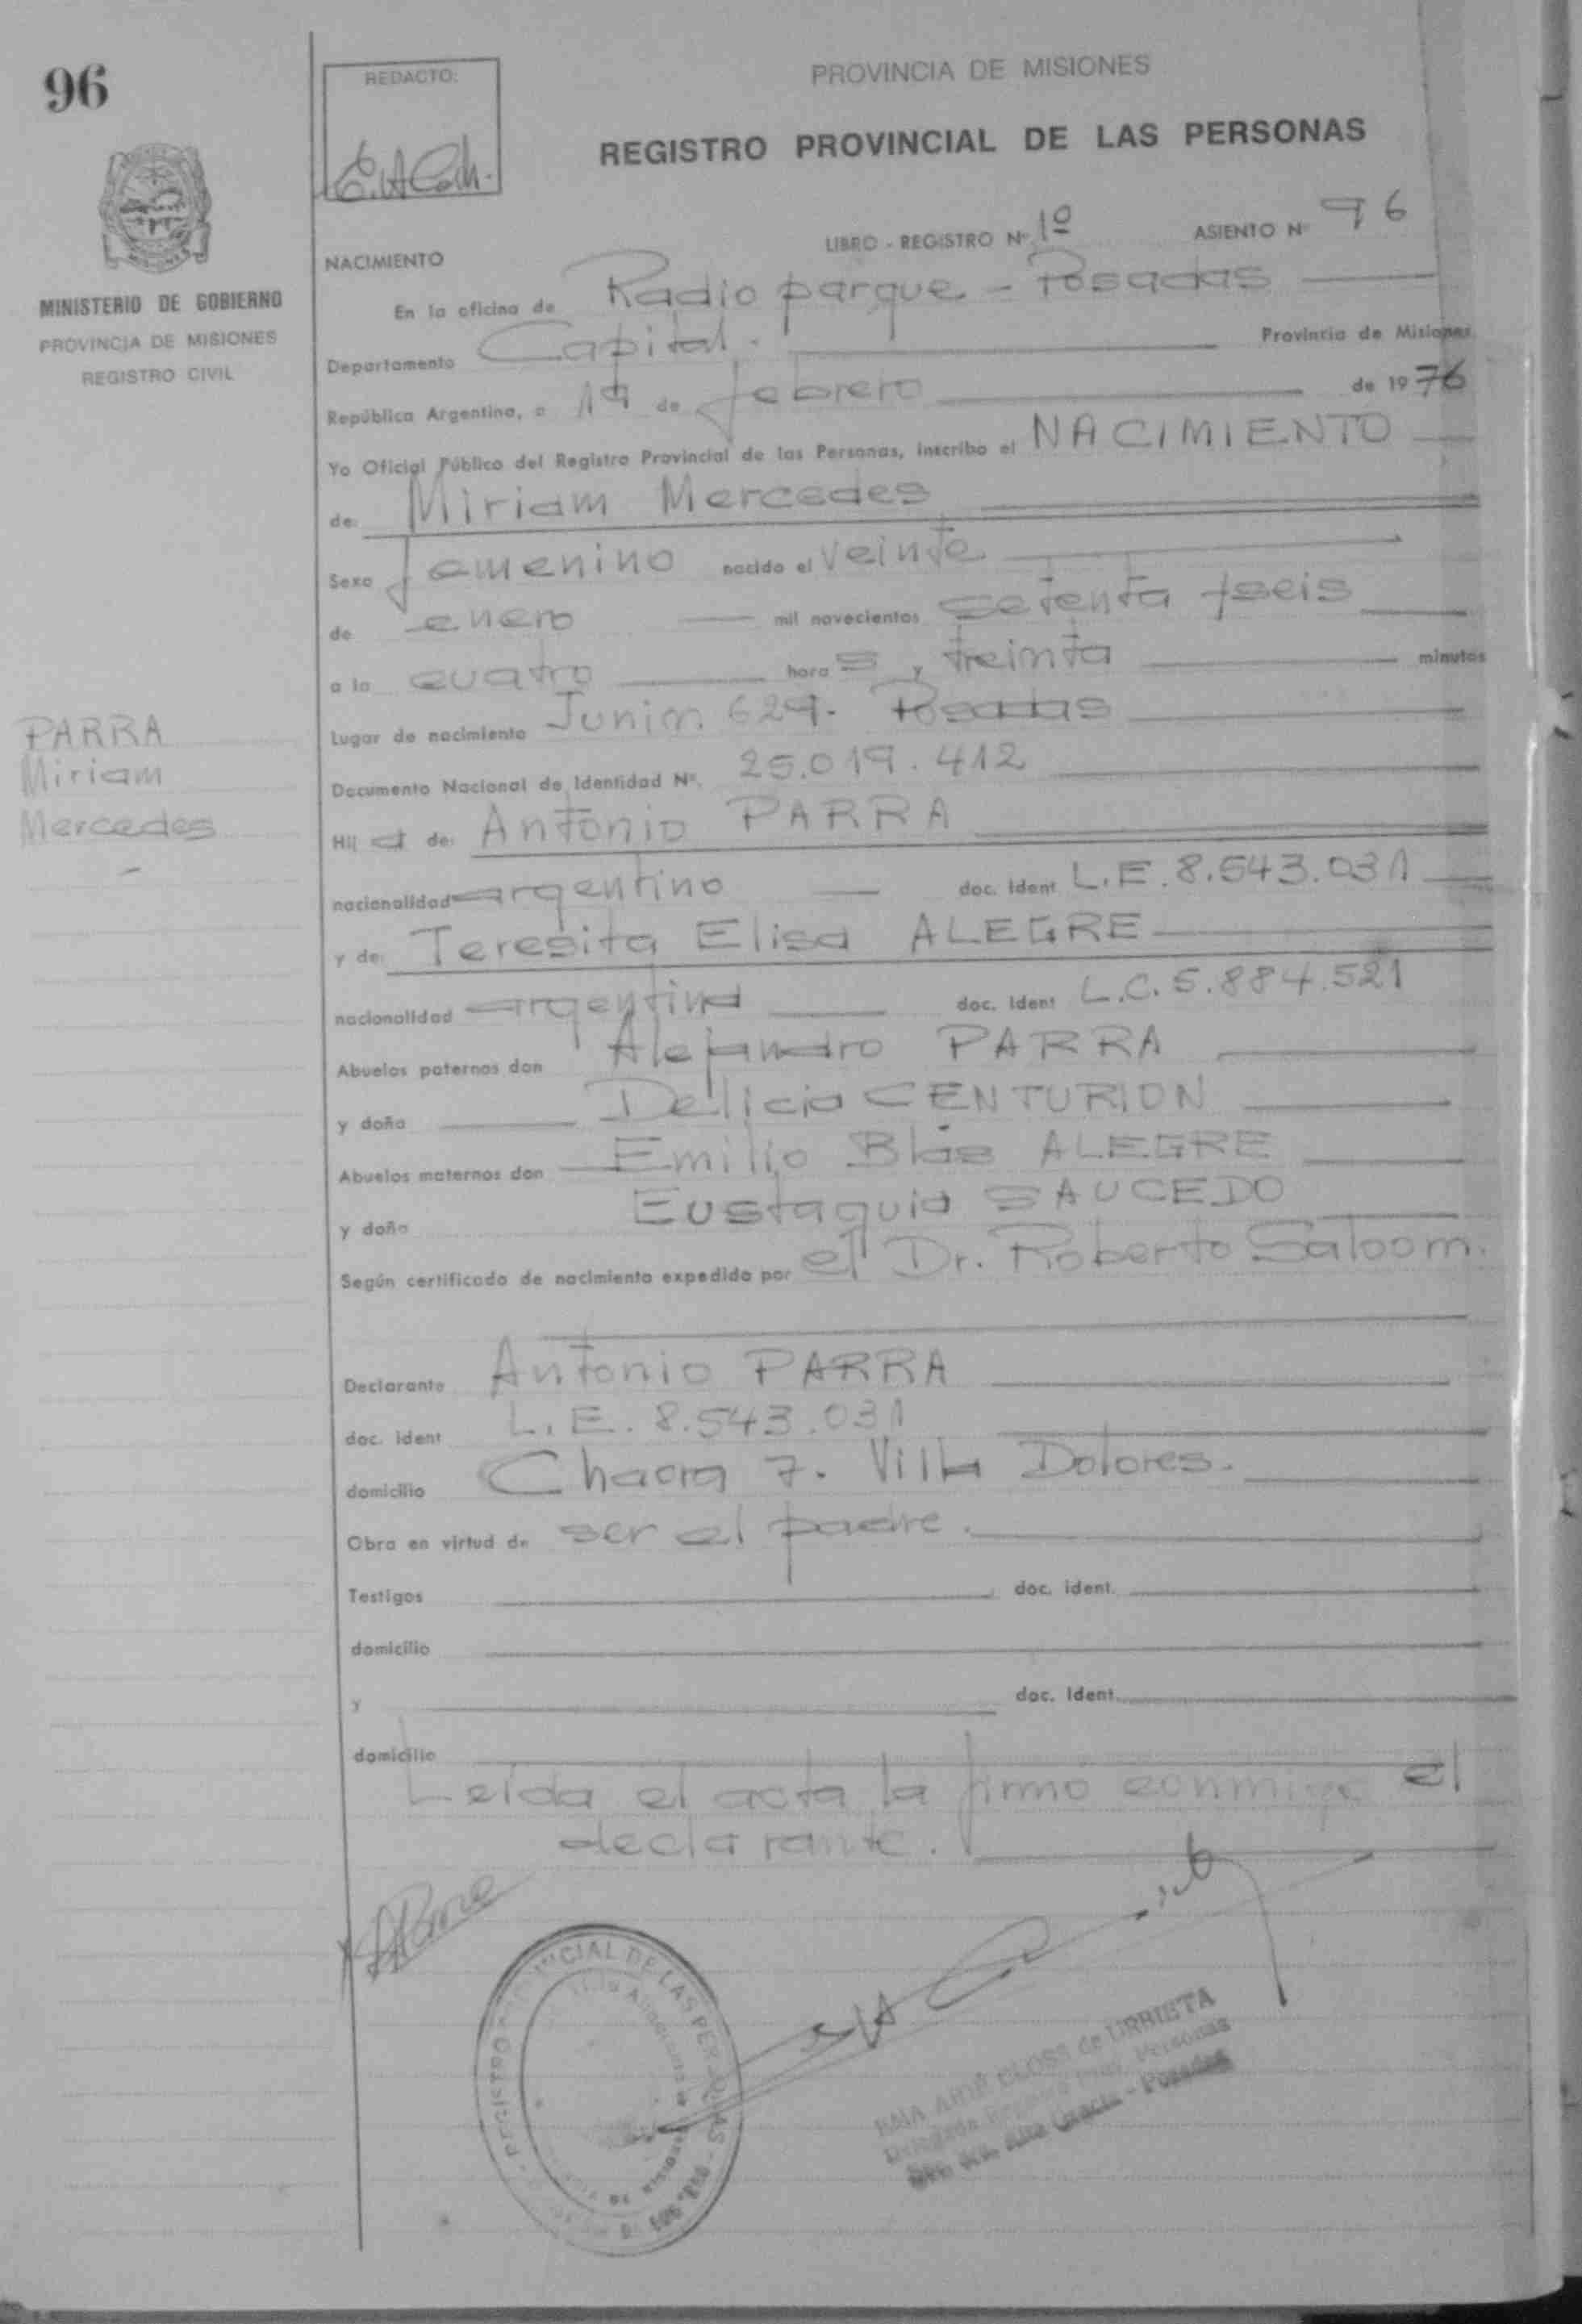 96
REDACTO:
PROVINCIA DE MISIONES
REGISTRO PROVINCIAL DE LAS PERSONAS
MINISTERIO DE GOBIERNO
PROVINCIA DE MISIONES
REGISTRO CIVIL
LIBRO - REGISTRO Nº 1º ASIENTO Nº 96
NACIMIENTO
En la oficina de Radio parque - Posadas
Departamento Capital. Provincia de Misiones
República Argentina, a 19 de febrero de 1976
Yo Oficial Público del Registro Provincial de las Personas, inscribo el NACIMIENTO
de: Miriam Mercedes
Sexo femenino nacido el veinte
de enero mil novecientos setenta y seis
a la cuatro horas y treinta minutos
Lugar de nacimiento Junin 629. Posadas
Documento Nacional de Identidad Nº. 25.019.412
PARRA
Miriam
Mercedes
Hija de: Antonio PARRA
nacionalidad argentino doc. ident. L.E. 8.543.031
y de: Teresita Elisa ALEGRE
nacionalidad argentina doc. ident L.C. 5.884.521
Abuelos paternos don Alejandro PARRA
y doña Delicia CENTURION
Abuelos maternos don Emilio Blás ALEGRE
y doña Eustaquia SAUCEDO
Según certificado de nacimiento expedido por el Dr. Roberto Saloom.
Declarante Antonio PARRA
doc. ident L.E. 8.543.031
domicilio Chacra 7. Villa Dolores.
Obra en virtud de ser el padre.
Testigos doc. ident.
domicilio
y doc. ident.
domicilio
Leída el acta la firmó conmigo el
declarante.
REGISTRO PROVINCIAL DE LAS PERSONAS
de URRIETA
Personas
Alta Gracia - Posadas